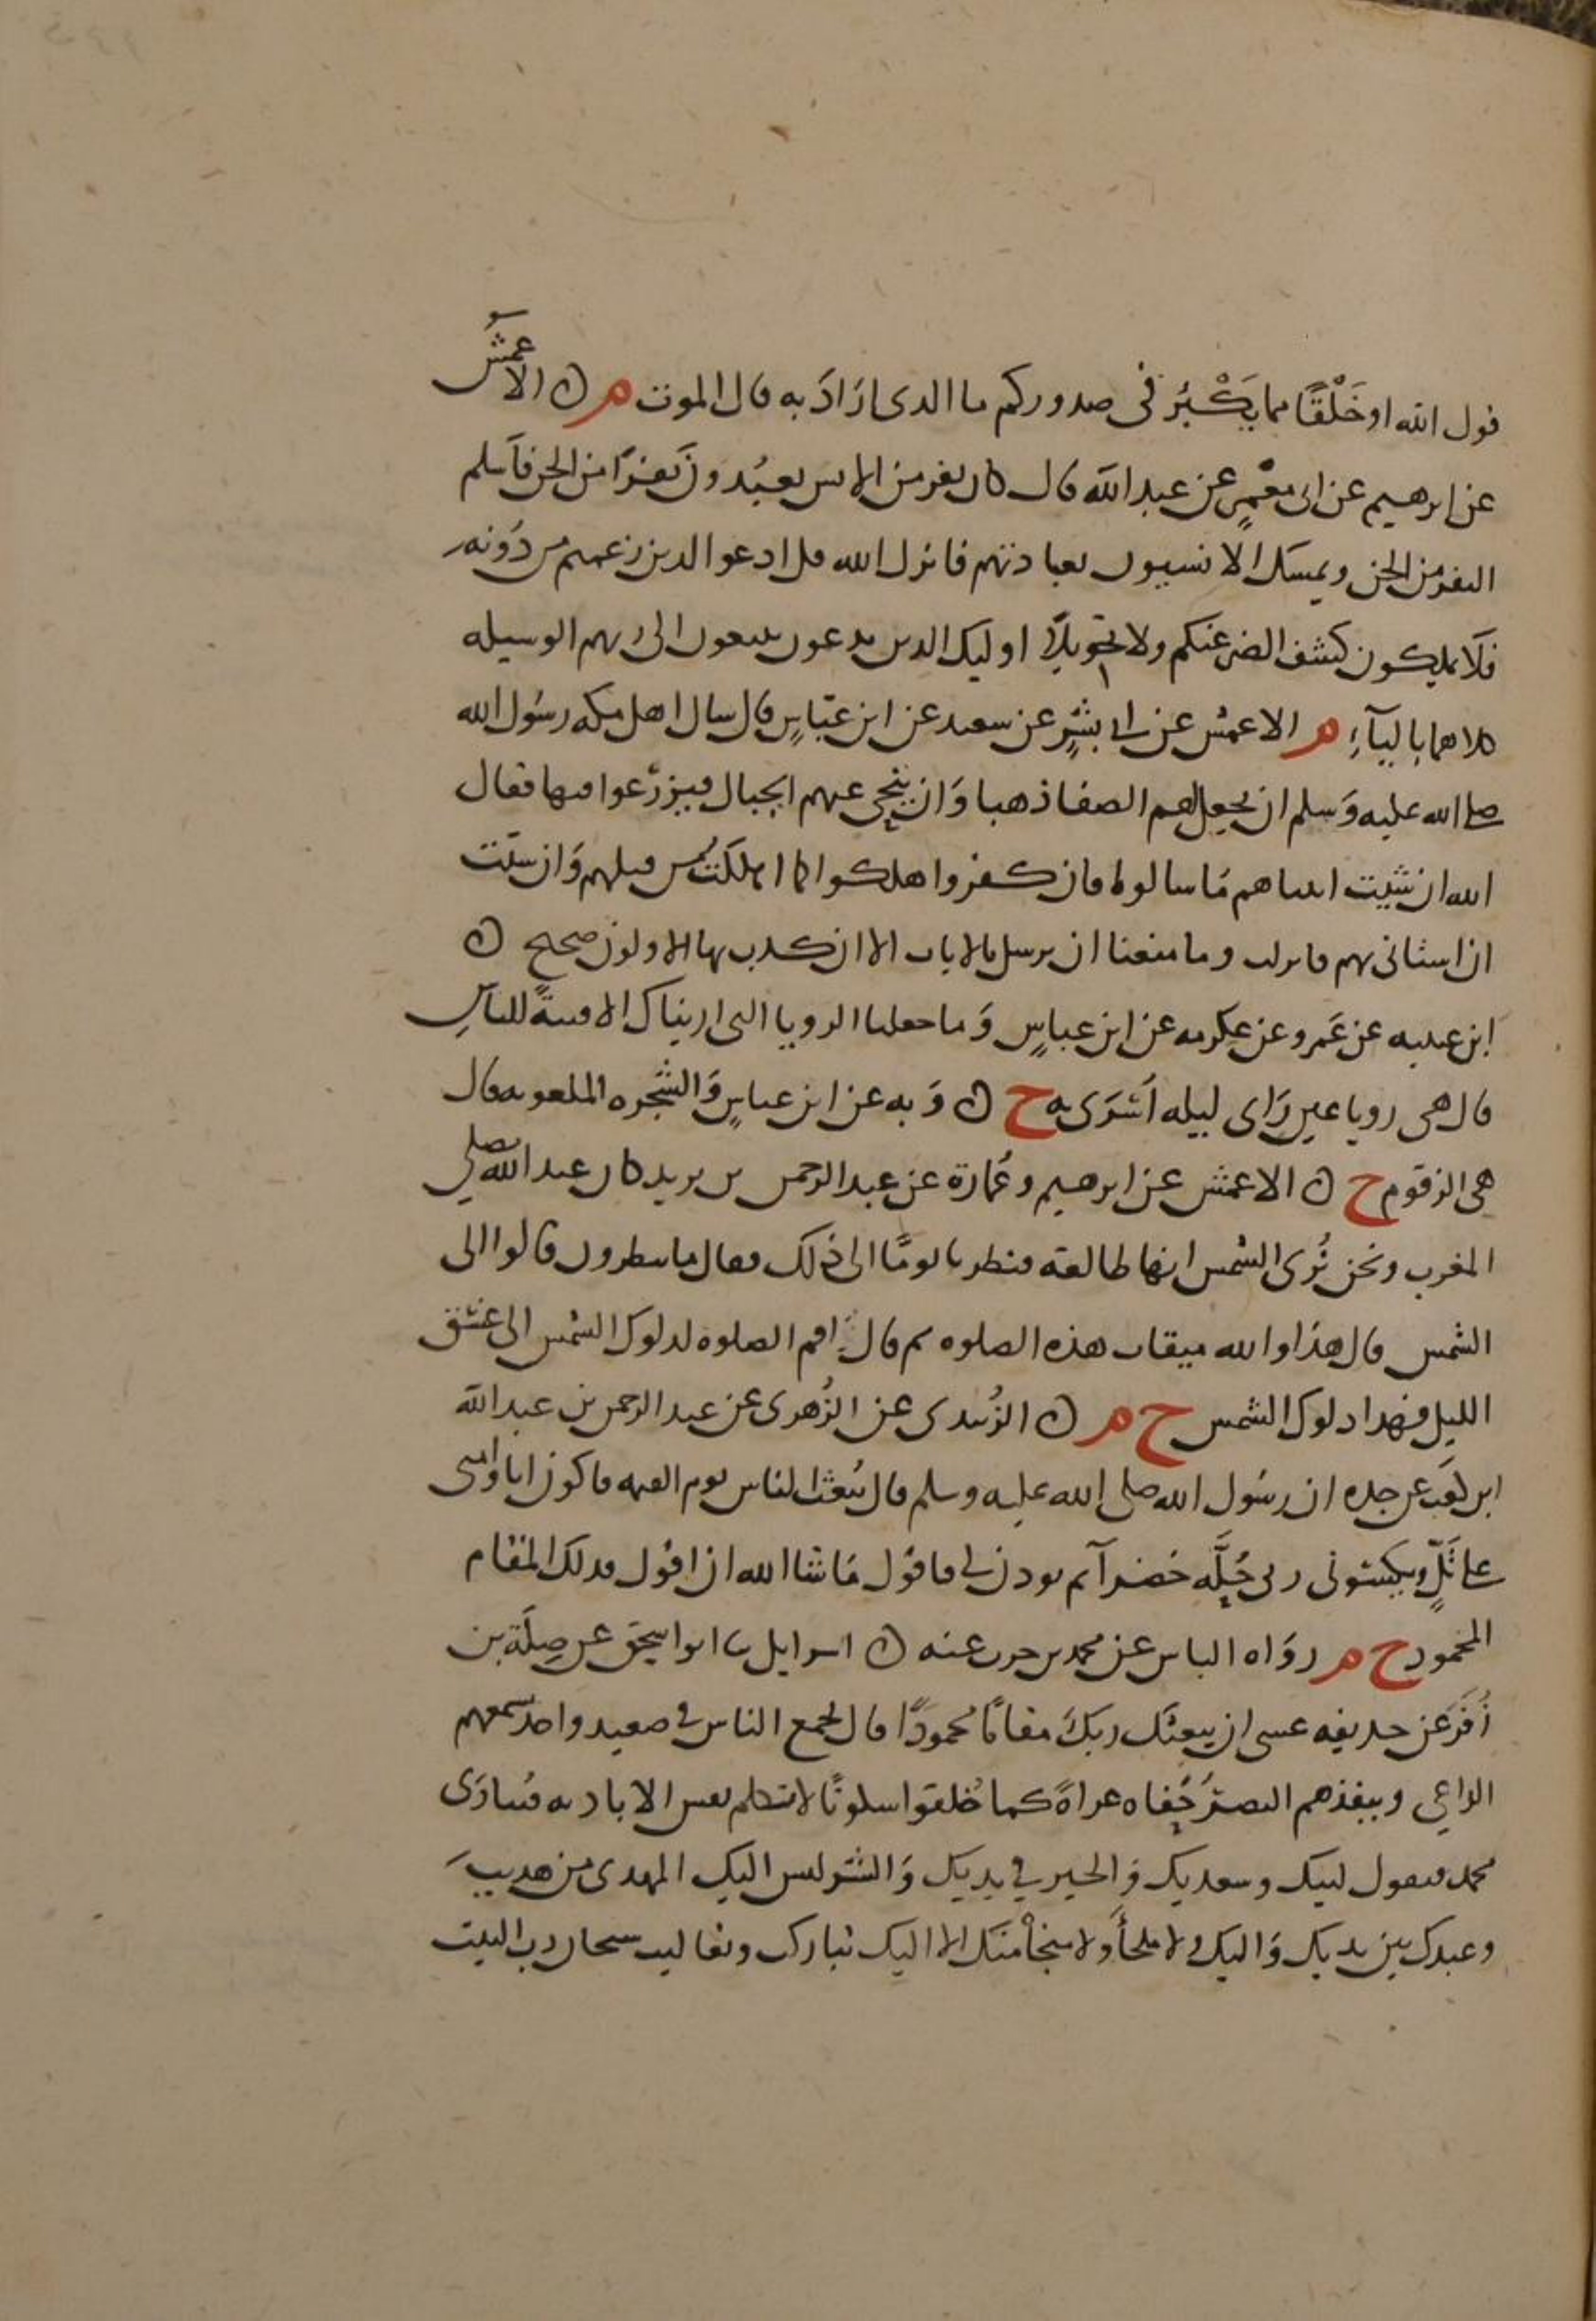 قول الله او خَلْقًا مما يَكْبُر فى صدوركم ما الذى ارَادَ به قال الموت م ن الاعمش
عن ابرهيم عن ابى معمرٍ عن عبد الله قال كان نفر من الانس يعبُدونَ نفرًا من الجن فاَسلم
النفر من الجن ويمسك الانسيون بعبادتهم فانزل الله قل ادعوا الذين زعمتم من دُونه
فلَا يملكون كشف الضر عنكم ولا تحويلًا اوليك الذين يدعون يبتغون الى ربهم الوسيله
كلاهما بِاليآءِ م الاعمش عن ابى بشرٍ عن سعيد عن ابن عبّاسٍ قال سال اهل مكه رسُول الله
صلى الله عليه وَسلم ان يجعل لهم الصفا ذهبا وَان ينحى عنهم الجبال فيزرعوا فيها فقال
الله ان شيت اتيناهم مَا سالوا فان كفروا اهلكوا كما اهلكتُ من قبلهم وَان شيت
ان استانى بهم فانزلت وما منعنا ان نرسل بالايات الا ان كذب بها الاولون صحيح ن
ابن عيينه عن عَمرو عن عكرمه عن ابن عباسٍ وَما جعلنا الرويا التى اريناك الا فتنةً للناسِ
قال هى رويا عين رَاى ليله اُسْرَى به خ ن وَ به عن ابن عباسٍ وَالشجره الملعونه قال
هى الزقوم خ ن الاعمش عن ابرهيم وعُمارة عن عبد الرحمن بن يزيد كان عبد الله يصلى
المغرب ونحن نُرى الشمس انها طالعة فنظرنا يومًا الى ذلك فقال ما تنظرون قالوا الى
الشمس قال هذا والله ميقات هذه الصلوه ثم قال اقم الصلوه لدلوك الشمس الى غسق
الليل فهذا دلوك الشمس خ م ن الزُبيدى عن الزُهرى عن عبد الرحمن بن عبد الله
ابن كعب عن جده ان رسُول الله صلى الله عليه وسلم قال يُبعث الناس يوم القيمه فاكون انا وَامتى
على تَلٍّ ويكسونى ربى حُلَّه خضرآ ثم يوذن لى فاقول مَا شا الله ان اقول فذلك المقام
المحمود خ م روَاه الناس عن محمد بن حرب عنه ن اسرايل نا ابو اسحق عن صِلَة بن
زُفَر عن حذيفه عسى ان يبعثك ربكَ مقامًا محمودًا قال يجمع الناس فى صعيد واحد يسمعهم
الداعى وينفذهم البصرُ حُفاه عراةً كما خُلقوا سكوتًا لا تتكلم نفس الا باذنه فيُنادَى
محمد فيقول لبيك وسعديك وَالخير في يديك وَالشر ليس اليك المهدى من هديتَ
وعبدك بين يديك وَاليك ولا ملجأَ ولا منجأ منك الا اليك تباركت وتعاليت سبحان رب البيت